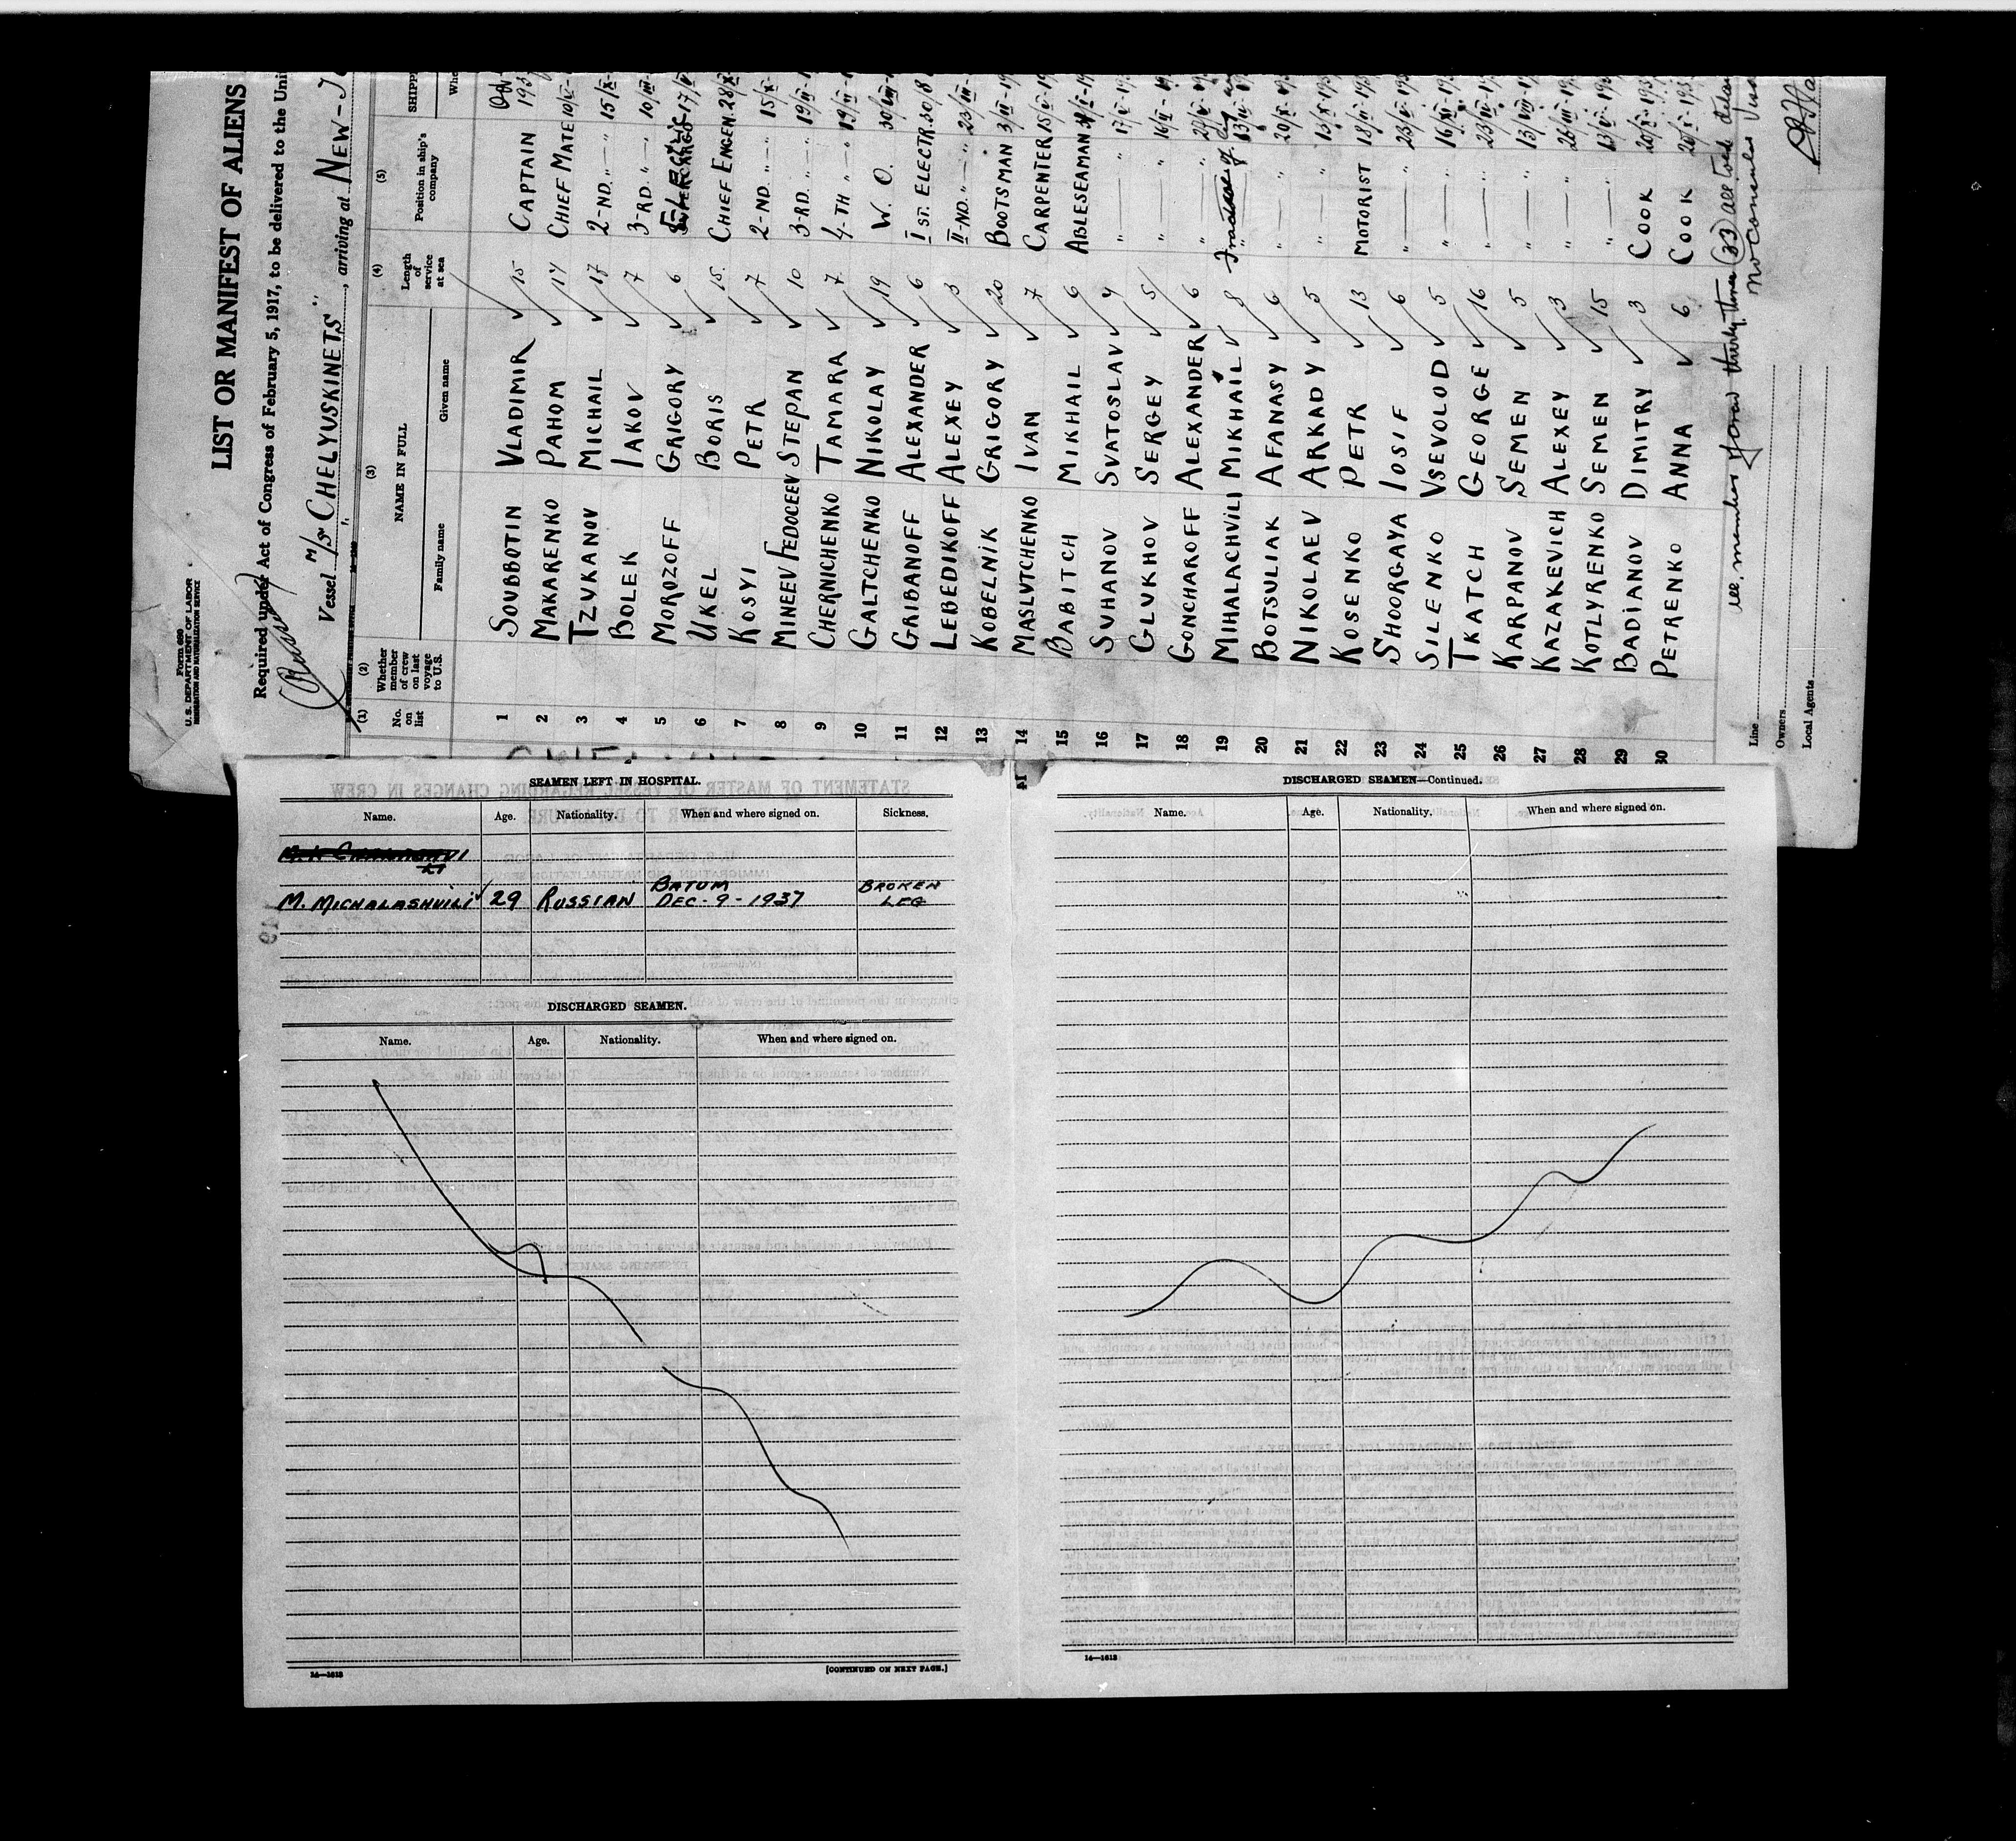 Form 680
U.S. DEPARTMENT OF LABOR
IMMIGRATION AND NATURALIZATION SERVICE
LIST OR MANIFEST OF ALIENS
Required under Act of Congress of February 5, 1917, to be delivered to the Uni
(Russian)
Vessel M/S "CHELYUSKINETS", arriving at NEW-
(1) (2) (3) (4) (5)
No. on list Whether member of crew on last voyage to U.S. NAME IN FULL Length of service at sea Position in ship's company SHIPP
Family name Given name Whe
1 SOUBBOTIN VLADIMIR 15 CAPTAIN 193
2 MAKARENKO PAHOM 14 CHIEF MATE 10/V-
3 TZUKANOV MICHAIL 17 2-ND. " 15/X-
4 BOLEK IAKOV 7 3-RD " 10/III-
5 MOROZOFF GRIGORY 6 17/V
6 UKEL BORIS 15 CHIEF ENGEN. 28/X-
7 KOSYI PETR 7 2-ND. " 15/X-
8 MINEEV FEDOCEEV STEPAN 10 3-RD. " 19/II-
9 CHERNICHENKO TAMARA 7 4-TH " 19/II-
10 GALTCHENKO NIKOLAY 19 W. O. 30/VIII-
11 GRIBANOFF ALEXANDER 6 I ST. ELECTR. 30/8
12 LEBEDIKOFF ALEXEY 3 II-ND. " 23/III-
13 KOBELNIK GRIGORY 20 BOOTSMAN 3/II-19
14 MASLUTCHENKO IVAN 7 CARPENTER 15/V-19
15 BABITCH MIKHAIL 6 ABLESEAMAN
16 SUHANOV SVATOSLAV 4 " 17/V-19
17 GLUKHOV SERGEY 5 " 16/II-19
18 GONCHAROFF ALEXANDER 6 "
19 MIHALACHVILI MIKHAIL 8 Fracture of leg
20 BOTSULIAK AFANASY 6 " 20/X-19
21 NIKOLAEV ARKADY 5 " 15/X-193
22 KOSENKO PETR 13 MOTORIST 18/II-193
23 SHOORGAYA IOSIF 6 " 23/V-193
24 SILENKO VSEVOLOD 5 " 16/XI-19
25 TKATCH GEORGE 16 " 23/IV-19
26 KARPANOV SEMEN 5 " 13/VIII-19
27 KAZAKEVICH ALEXEY 3 " 26/III-19
28 KOTLYRENKO SEMEN 15 " 13/V-19
29 BADIANOV DIMITRY 3 COOK 20/X-193
30 PETRENKO ANNA 6 COOK 20/X-193
thirty three (33) all told
No Consular Visa
Line
Owners
Local Agents
SEAMEN LEFT IN HOSPITAL.
Name. Age. Nationality. When and where signed on. Sickness.
M. MICHALASHVILI 29 RUSSIAN BATUM DEC-9-1937 BROKEN LEG
DISCHARGED SEAMEN.
Name. Age. Nationality. When and where signed on.
14—1613
[CONTINUED ON NEXT PAGE.]
DISCHARGED SEAMEN—Continued.
Name. Age. Nationality. When and where signed on.
14—1613